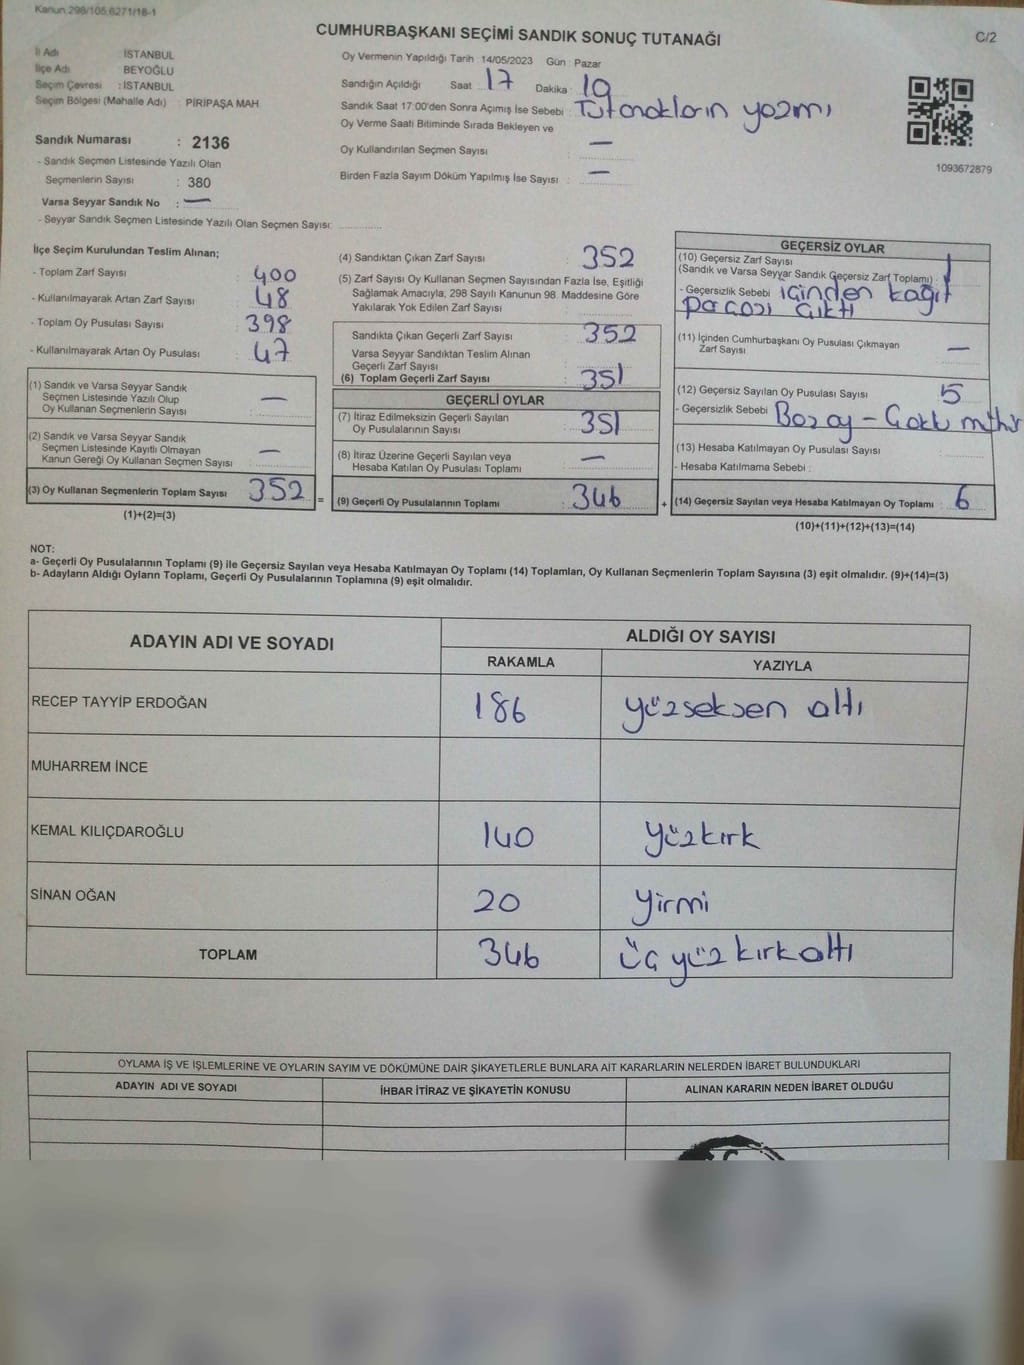 Kanun.298/105,6271/18-1
CUMHURBAŞKANI SEÇİMİ SANDIK SONUÇ TUTANAĞI
C/2
İl Adı İSTANBUL
İlçe Adı BEYOĞLU
Seçim Çevresi : İSTANBUL
Seçim Bölgesi (Mahalle Adı) : PİRİPAŞA MAH.
Sandık Numarası : 2136
- Sandık Seçmen Listesinde Yazılı Olan
Seçmenlerin Sayısı : 380
Varsa Seyyar Sandık No : —
- Seyyar Sandık Seçmen Listesinde Yazılı Olan Seçmen Sayısı:
Oy Vermenin Yapıldığı Tarih : 14/05/2023 Gün : Pazar
Sandığın Açıldığı Saat : 17 Dakika : 10
Sandık Saat 17:00'den Sonra Açımış İse Sebebi : Tutanakların yazımı
Oy Verme Saati Bitiminde Sırada Bekleyen ve
Oy Kullandırılan Seçmen Sayısı : —
Birden Fazla Sayım Döküm Yapılmış İse Sayısı : —
1093672879
İlçe Seçim Kurulundan Teslim Alınan;
- Toplam Zarf Sayısı : 400
- Kullanılmayarak Artan Zarf Sayısı : 48
- Toplam Oy Pusulası Sayısı : 398
- Kullanılmayarak Artan Oy Pusulası : 47
(1) Sandık ve Varsa Seyyar Sandık
Seçmen Listesinde Yazılı Olup
Oy Kullanan Seçmenlerin Sayısı : —
(2) Sandık ve Varsa Seyyar Sandık
Seçmen Listesinde Kayıtlı Olmayan
Kanun Gereği Oy Kullanan Seçmen Sayısı : —
(3) Oy Kullanan Seçmenlerin Toplam Sayısı : 352
(1)+(2)=(3)
=
(4) Sandıktan Çıkan Zarf Sayısı : 352
(5) Zarf Sayısı Oy Kullanan Seçmen Sayısından Fazla İse, Eşitliği
Sağlamak Amacıyla, 298 Sayılı Kanunun 98. Maddesine Göre
Yakılarak Yok Edilen Zarf Sayısı :
Sandıkta Çıkan Geçerli Zarf Sayısı : 352
Varsa Seyyar Sandıktan Teslim Alınan
Geçerli Zarf Sayısı :
(6) Toplam Geçerli Zarf Sayısı : 351
GEÇERLİ OYLAR
(7) İtiraz Edilmeksizin Geçerli Sayılan
Oy Pusulalarının Sayısı : 351
(8) İtiraz Üzerine Geçerli Sayılan veya
Hesaba Katılan Oy Pusulası Toplamı : —
(9) Geçerli Oy Pusulalarının Toplamı : 346
+
GEÇERSİZ OYLAR
(10) Geçersiz Zarf Sayısı
(Sandık ve Varsa Seyyar Sandık Geçersiz Zarf Toplamı) : 1
- Geçersizlik Sebebi : içinden kağıt
parçası çıktı
(11) İçinden Cumhurbaşkanı Oy Pusulası Çıkmayan
Zarf Sayısı : —
(12) Geçersiz Sayılan Oy Pusulası Sayısı : 5
- Geçersizlik Sebebi :
(13) Hesaba Katılmayan Oy Pusulası Sayısı :
- Hesaba Katılmama Sebebi :
(14) Geçersiz Sayılan veya Hesaba Katılmayan Oy Toplamı : 6
(10)+(11)+(12)+(13)=(14)
NOT:
a- Geçerli Oy Pusulalarının Toplamı (9) ile Geçersiz Sayılan veya Hesaba Katılmayan Oy Toplamı (14) Toplamları, Oy Kullanan Seçmenlerin Toplam Sayısına (3) eşit olmalıdır. (9)+(14)=(3)
b- Adayların Aldığı Oyların Toplamı, Geçerli Oy Pusulalarının Toplamına (9) eşit olmalıdır.
ADAYIN ADI VE SOYADI
ALDIĞI OY SAYISI
RAKAMLA YAZIYLA
RECEP TAYYİP ERDOĞAN 186 yüzseksen altı
MUHARREM İNCE
KEMAL KILIÇDAROĞLU 140 yüzkırk
SİNAN OĞAN 20 yirmi
TOPLAM 346 üç yüz kırkaltı
OYLAMA İŞ VE İŞLEMLERİNE VE OYLARIN SAYIM VE DÖKÜMÜNE DAİR ŞİKAYETLERLE BUNLARA AİT KARARLARIN NELERDEN İBARET BULUNDUKLARI
ADAYIN ADI VE SOYADI İHBAR İTİRAZ VE ŞİKAYETİN KONUSU ALINAN KARARIN NEDEN İBARET OLDUĞU